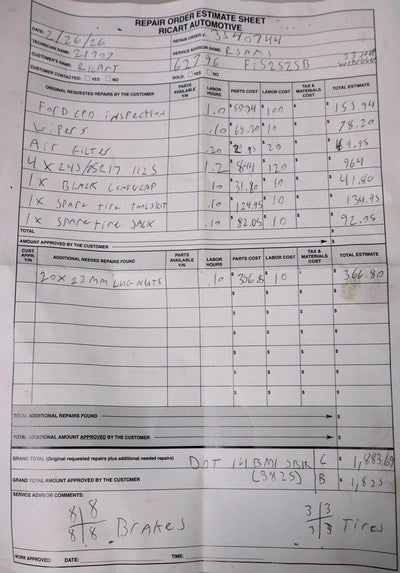 REPAIR ORDER ESTIMATE SHEET
RICART AUTOMOTIVE
DATE: 2/26/26 REPAIR ORDER #: 3540744
TECHNICIAN NAME: 21902 SERVICE ADVISOR NAME: RSAMS
CUSTOMER'S NAME: RICART 62796 FIS2525B
CUSTOMER CONTACTED: YES NO SOLD: YES NO
ORIGINAL REQUESTED REPAIRS BY THE CUSTOMER PARTS AVAILABLE Y/N LABOR HOURS PARTS COST LABOR COST TAX & MATERIALS COST TOTAL ESTIMATE
FORD CPO INSPECTION 1.0 $ $100 $ $155.94
WIPERS .10 $ $10 $ $78.20
AIR FILTER .20 $ $20 $ $
4 X 1.2 $844 $120 $ $964
1X BLACK .10 $31.80 $10 $ $41.80
1X SPARE TIRE TOOLSKIT .10 $124.95 $10 $ $134.95
1X SPARE TIRE JACK .10 $82.05 $10 $ $92.05
TOTAL $
AMOUNT APPROVED BY THE CUSTOMER $
CUST. APPR. Y/N ADDITIONAL NEEDED REPAIRS FOUND PARTS AVAILABLE Y/N LABOR HOURS PARTS COST LABOR COST TAX & MATERIALS COST TOTAL ESTIMATE
20X 22MM LUG NUTS .10 $356.8 $10 $ $366.80
TOTAL ADDITIONAL REPAIRS FOUND $
TOTAL ADDITIONAL AMOUNT APPROVED BY THE CUSTOMER $
GRAND TOTAL (Original requested repairs plus additional needed repairs) DOT C $1,883.69
GRAND TOTAL AMOUNT APPROVED BY THE CUSTOMER (3825) B $1,825
SERVICE ADVISOR COMMENTS:
8 8 3 3
8 8 BRAKES 3 3 TIRES
WORK APPROVED: DATE: TIME: